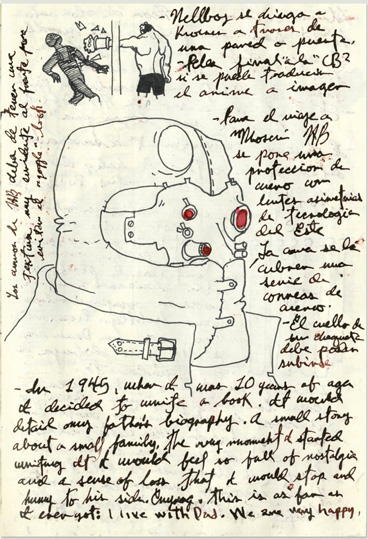 -Hellboy se dirige a
Kroenen a traves de
una pared o puerta.
-Pelea final a la "CB?
si se puede traducir
el anime a imagen
-Para el viaje a
Moscú HB
se pone una
protección de
cuero con
lentes
de tecnología
del Este
La cara se la
cubren una
serie de
correas de
cuero.
-El cuello de
su chaqueta
debe poder
subirse
-In 1945, when I was 10 years of age
I decided to write a book. It would
detail my father's biography. A small story
about a small family. The very moment I started
writing it I would feel so full of nostalgia
and a sense of loss that I would stop and
hurry to his side. Anyway, this is as far as
I ever got: I live with Dad. We are very happy.